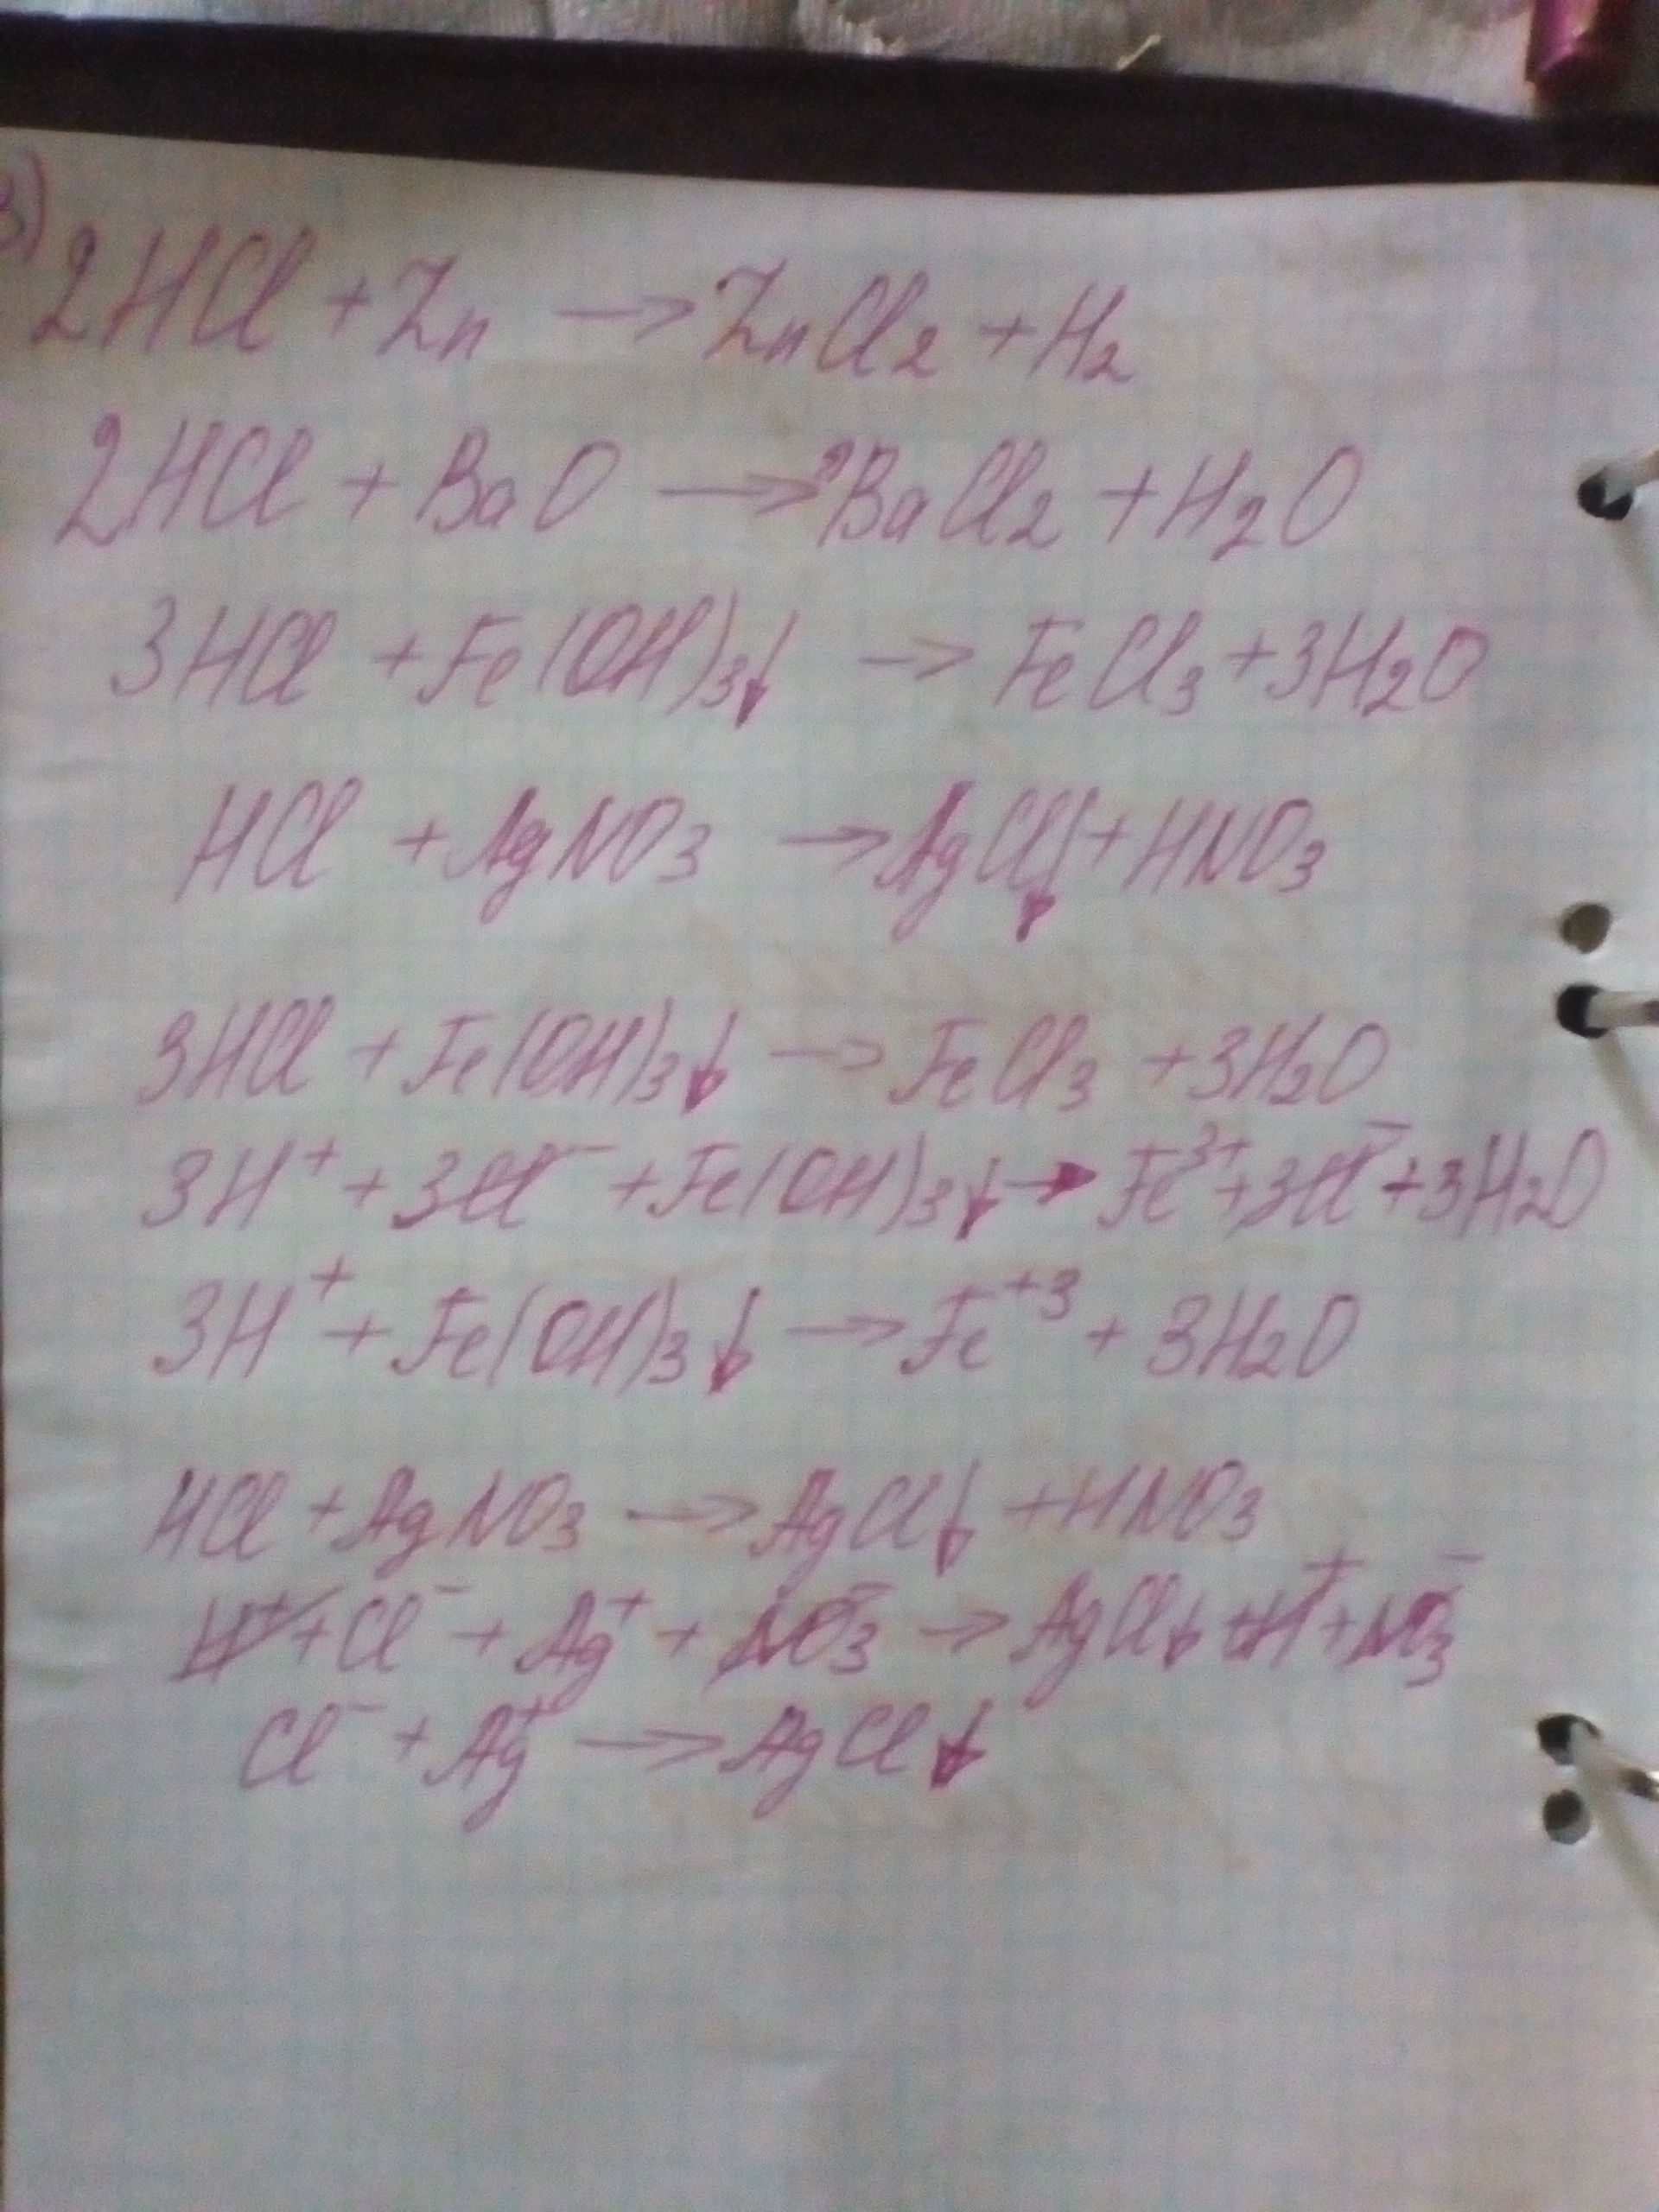 3)
2HCl + Zn → ZnCl₂ + H₂
2HCl + BaO → BaCl₂ + H₂O
3HCl + Fe(OH)₃↓ → FeCl₃ + 3H₂O
HCl + AgNO₃ → AgCl↓ + HNO₃
3HCl + Fe(OH)₃↓ → FeCl₃ + 3H₂O
3H⁺ + 3Cl⁻ + Fe(OH)₃↓ → Fe³⁺ + 3Cl⁻ + 3H₂O
3H⁺ + Fe(OH)₃↓ → Fe⁺³ + 3H₂O
HCl + AgNO₃ → AgCl↓ + HNO₃
H⁺ + Cl⁻ + Ag⁺ + NO₃⁻ → AgCl↓ + H⁺ + NO₃⁻
Cl⁻ + Ag⁺ → AgCl↓